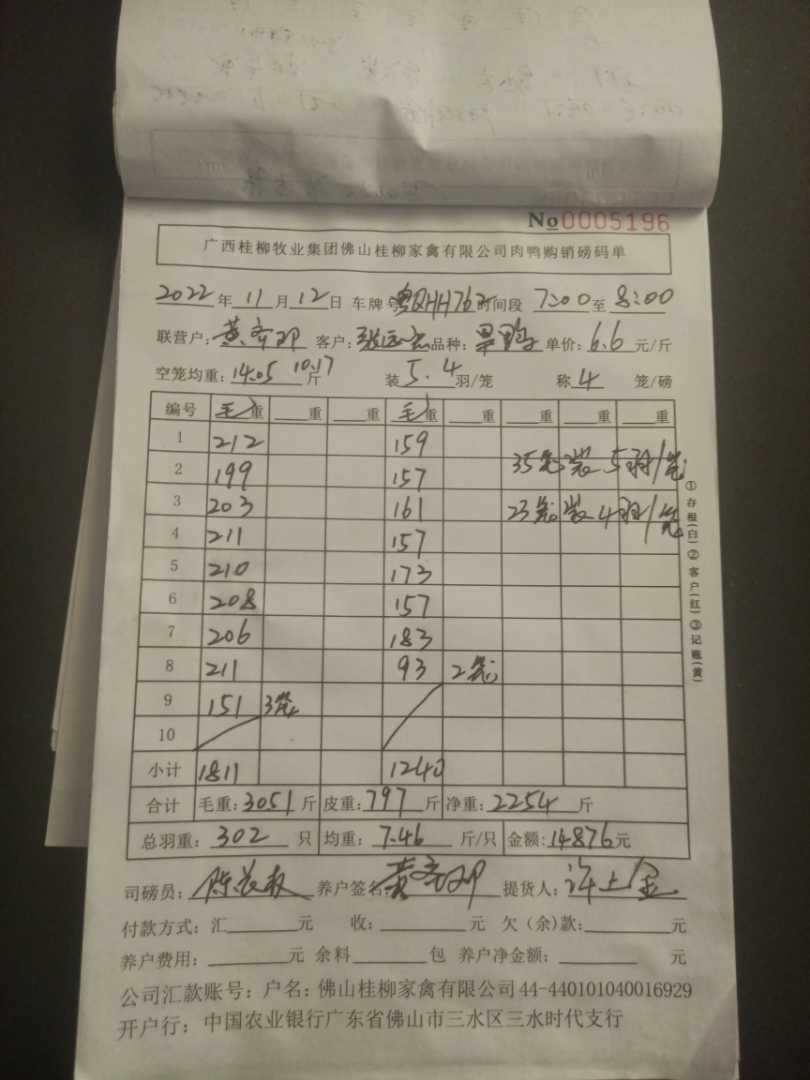 No0005196
广西桂柳牧业集团佛山桂柳家禽有限公司肉鸭购销磅码单
2022年11月12日 车牌号: 时间段 7:00至8:00
联营户: 客户: 品种: 单价:6.6元/斤
空笼均重:14.05 10.17斤 装5.4羽/笼 称4笼/磅
编号 毛重 重 重 毛重 重 重 重 重
1 212 159
2 199 157 35笼装5羽/笼
3 203 161 23笼装4羽/笼
4 211 157
5 210 173
6 208 157
7 206 183
8 211 93 2笼
9 151 3笼
10
小计 1811 1240
合计 毛重:3051斤 皮重:797斤 净重:2254斤
总羽重:302只 均重:7.46斤/只 金额:14876元
司磅员: 养户签名: 提货人:许上金
付款方式:汇 元 收: 元 欠(余)款: 元
养户费用: 元 余料 包 养户净金额: 元
公司汇款账号:户名:佛山桂柳家禽有限公司44-440101040016929
开户行:中国农业银行广东省佛山市三水区三水时代支行
①存根(白)②客户(红)③记账(黄)